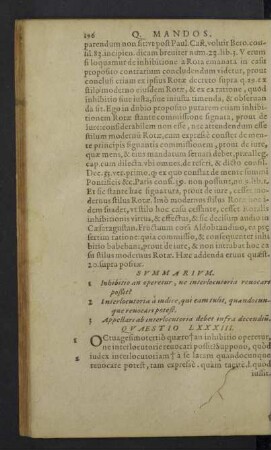 196 Q. MANDOS.
parendum non sit vt post Paul. Cast. voluit Bero. con-
sil. 83. incipien. dicam breuiter num. 23. lib. 3. Verum
si loquamur de inhibitione à Rota emanata in casu
proposito contrarium concludendum videtur, prout
conclusi etiam ex ipsius Rotæ decreto supra q. 29. ex
stilo moderno eiusdem Rotæ, & ex ea ratione, quòd
inhibitio siue iusta, siue iniusta timenda, & obseruan-
da sit. Ego in dubio proposito putarem etiam inhibi-
tionem Rotæ stante commissione signata, prout de
iure considerandum esse, non attendendum esse
stilum modernũ Rotæ, cum expressè constet de men-
te principis signantis commissionem, prout de iure,
quæ mens, & eius mandatum seruari debet, præalleg.
cap. cum dilecta vbi omnes, de rescri. & dicto consil.
Dec. 83. vers. primo. q ex quo constat de mente summi
Pontificis &c. Paris consil. 19. num
Et sic stante hac signatura, prout de iure, cesset mo-
dernus stilus Rotæ. Imò modernus stilus Rotæ
dem suadet, vt stilo hoc casu cessante, cesset
inhibitionis virtus, & effectus, & sic decisum audiui in
Cæsaraugustan. Fructuum cora Aldobrandino, ex præ
sertim ratione: quia commissio, & consequenter inhi
bitio habebant, prout de iure, & non intrabat hoc ca
su stilus modernus Rotæ. Hæc addenda erunt quæst.
20. supra positæ.
SVMMARIVM.
1 Inhibitio an operetur, ne interlocutoria reuocari
possit?
2 Interlocutoria à iudice, qui eam tulit, quandocun-
que reuocari potest.
3 Appellari ab interlocutoria debet infra decendiũ.
QVAESTIO LXXXIII.
1 OCtuagesimotertiò quæro† an inhibitio operetur,
ne interlocutorie reuocari possit? Suppono, quòd
2 iudex interlocutoriam† à se latam quandocunque
reuocare potest, tam expressè, quàm tacitè. l. quod
iussit.